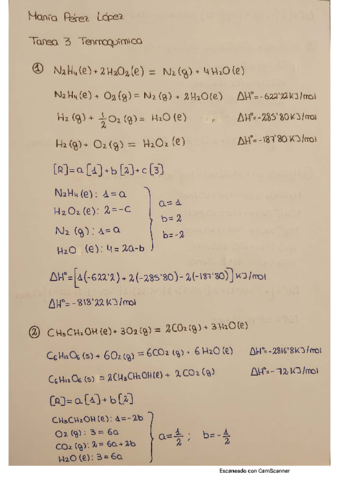 María Pérez López
Tarea 3 Termoquímica
① N₂H₄(e) + 2H₂O₂(e) = N₂(g) + 4H₂O(e)
N₂H₄(e) + O₂(g) = N₂(g) + 2H₂O(e) ΔHº = -622'22 KJ/mol
H₂(g) + 1/2 O₂(g) = H₂O(e) ΔHº = -285'80 KJ/mol
H₂(g) + O₂(g) = H₂O₂(e) ΔHº = -187'80 KJ/mol
[R] = a[1] + b[2] + c[3]
N₂H₄(e): 1 = a
H₂O₂(e): 2 = -c
N₂(g): 1 = a
H₂O (e): 4 = 2a-b
a = 1
b = 2
b = -2
ΔHº = [1(-622'2) + 2(-285'80) - 2(-187'80)] KJ/mol
ΔHº = -818'22 KJ/mol
② CH₃CH₂OH(e) + 3O₂(g) = 2CO₂(g) + 3H₂O(e)
C₆H₁₂O₆(s) + 6O₂(g) = 6CO₂(g) + 6H₂O(e) ΔHº = -2816'8 KJ/mol
C₆H₁₂O₆(s) = 2CH₃CH₂OH(e) + 2CO₂(g) ΔHº = -72 KJ/mol
[R] = a[1] + b[2]
CH₃CH₂OH(e): 1 = -2b
O₂(g): 3 = 6a
CO₂(g): 2 = 6a + 2b
H₂O(e): 3 = 6a
a = 1/2 ; b = -1/2
Escaneado con CamScanner